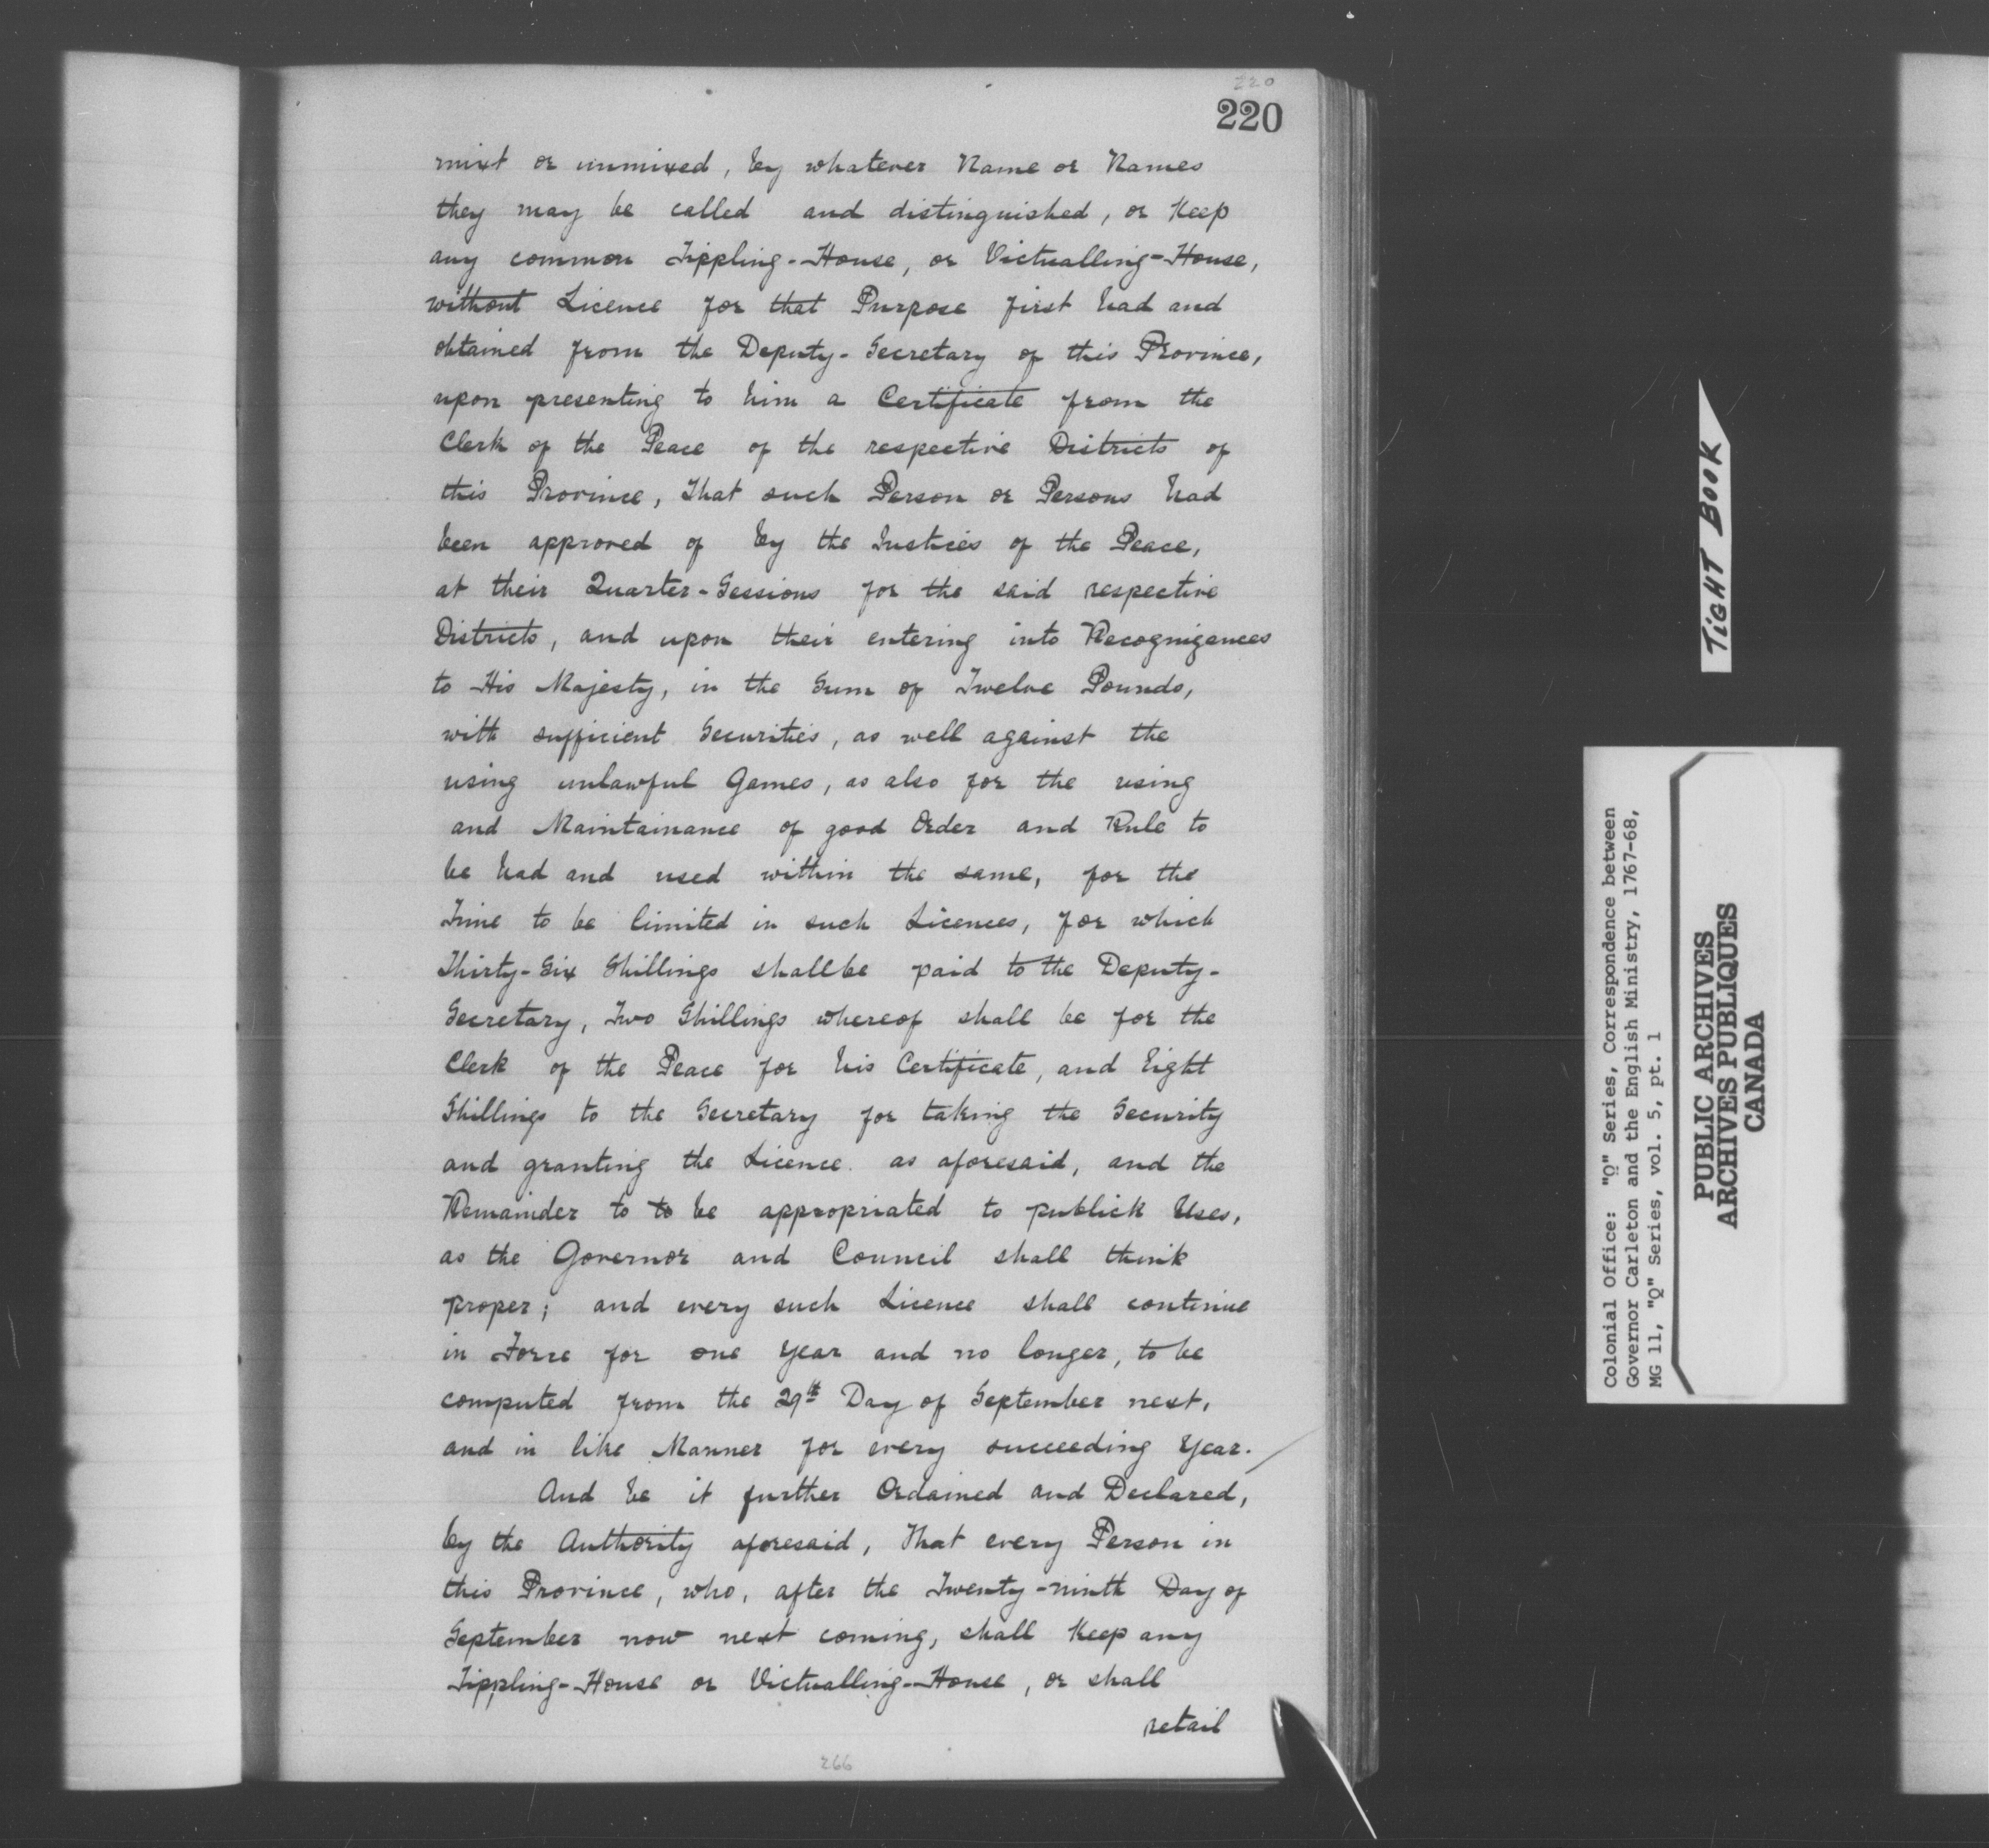 220
220
mixt or unmixed, by whatever Name or Names
they may be called and distinguished, or Keep
any common Tippling-House, or Victualling-House,
without Licence for that Purpose first had and
obtained from the Deputy-Secretary of this Province,
upon presenting to him a Certificate from the
Clerk of the Peace of the respective Districts of
this Province, That such Person or Persons had
been approved of by the Justices of the Peace,
at their Quarter-Sessions for the said respective
Districts, and upon their entering into Recognizances
to His Majesty, in the Sum of Twelve Pounds,
with sufficient Securities, as well against the
using unlawful Games, as also for the using
and Maintainance of good Order and Rule to
be had and used within the same, for the
Time to be limited in such Licences, for which
Thirty-Six Shillings shall be paid to the Deputy-
Secretary, Two Shillings whereof shall be for the
Clerk of the Peace for his Certificate, and Eight
Shillings to the Secretary for taking the Security
and granting the Licence as aforesaid, and the
Remainder to to be appropriated to publick Uses,
as the Governor and Council shall think
proper; and every such Licence shall continue
in Force for one Year and no longer, to be
computed from the 29th Day of September next,
and in like Manner for every succeeding Year.
And be it further Ordained and Declared,
by the Authority aforesaid, That every Person in
this Province, who, after the Twenty-ninth Day of
September now next coming, shall Keep any
Tippling-House or Victualling-House, or shall
retail
266
TIGHT BOOK
Colonial Office: "Q" Series, Correspondence between
Governor Carleton and the English Ministry, 1767-68,
MG 11, "Q" Series, vol. 5, pt. 1
PUBLIC ARCHIVES
ARCHIVES PUBLIQUES
CANADA